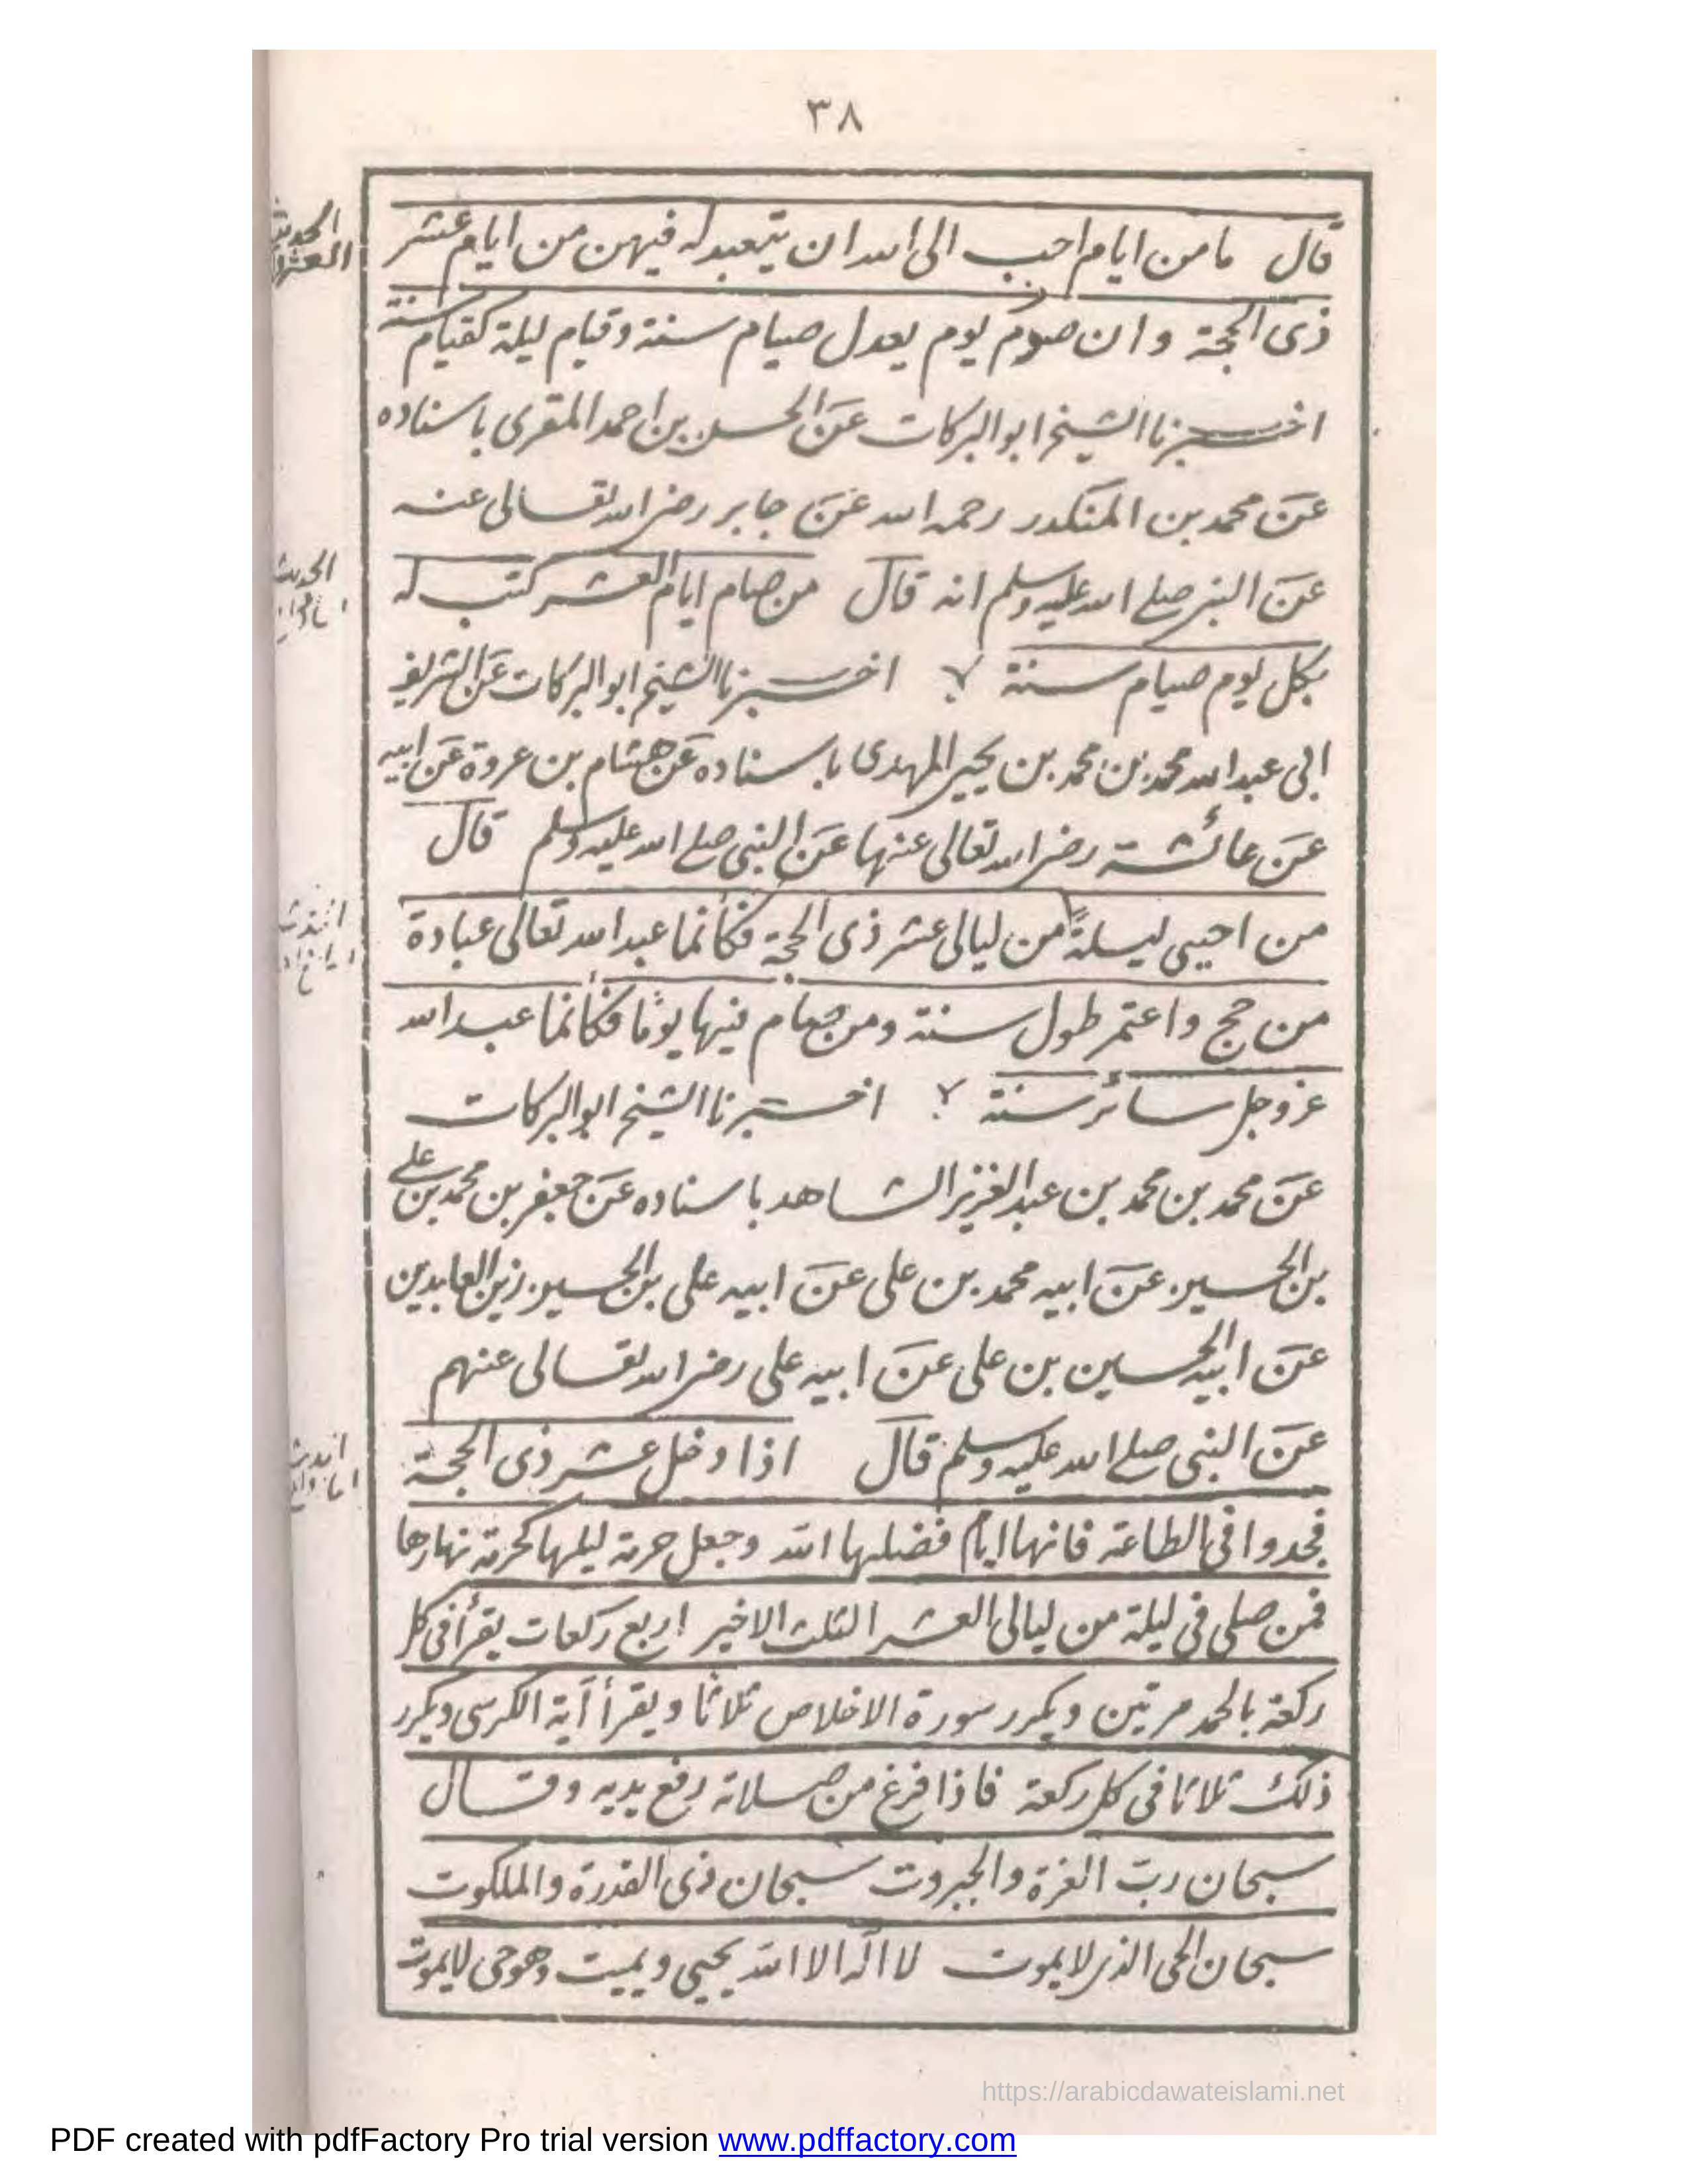 ٣٨
قال ما من ايام احب الى الله ان يتعبد له فيهن من ايام عشر
ذى الحجة وان صوم يوم يعدل صيام سنة وقيام ليلة كقيام سنة
اخبرنا الشيخ ابو البركات عن الحسن بن احمد المقرى باسناده
عن محمد بن المنكدر رحمه الله عن جابر رضى الله تعالى عنه
عن النبى صلے الله عليه وسلم انه قال من صام ايام العشر كتب له
بكل يوم صيام سنة اخبرنا الشيخ ابو البركات عن الشريف
ابى عبد الله محمد بن محمد بن يحيى المهدى باسناده عن هشام بن عروة عن ابيه
عن عائشة رضى الله تعالى عنها عن النبى صلے الله عليه وسلم قال
من احيى ليلةً من ليالى عشر ذى الحجة فكأنما عبد الله تعالى عبادة
من حج واعتمر طول سنة ومن صام فيها يومًا فكأنما عبد الله
عز وجل سائر سنة اخبرنا الشيخ ابو البركات
عن محمد بن محمد بن عبد العزيز الشاهد باسناده عن جعفر بن محمد بن علے
بن الحسين عن ابيه محمد بن على عن ابيه على بن الحسين زين العابدين
عن ابيه الحسين بن على عن ابيه على رضى الله تعالى عنهم
عن النبى صلے الله عليه وسلم قال اذا دخل عشر ذى الحجة
فجدوا فى الطاعة فانها ايام فضلها الله وجعل حرمة ليلها كحرمة نهارها
فمن صلى فى ليلة من ليالى العشر الثلث الاخير اربع ركعات يقرأ فى كل
ركعة بالحمد مرتين ويكرر سورة الاخلاص ثلاثا ويقرأ آية الكرسى ويكرر
ذلك ثلاثا فى كل ركعة فاذا فرغ من صلاته رفع يديه وقال
سبحان ربّ العزة والجبروت سبحان ذى القدرة والملكوت
سبحان الحى الذى لا يموت لا اله الا الله يحيى ويميت وهو حى لا يموت
الحديث
الحديث
https://arabicdawateislami.net
PDF created with pdfFactory Pro trial version www.pdffactory.com